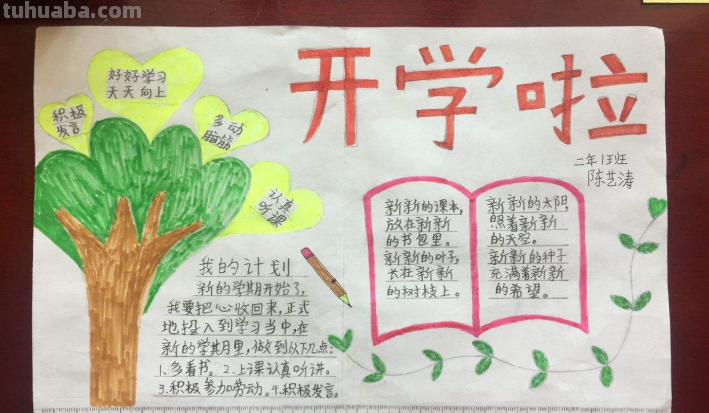 tuhuaba.com
开学啦
二年1班
陈艺涛
好好学习
天天向上
积极
发言
多动
脑筋
认真
听课
新新的课本,
放在新新
的书包里。
新新的叶子,
长在新新
的树枝上。
新新的太阳,
照着新新
的天空。
新新的种子
充满着新新
的希望。
我的计划
新的学期开始了,
我要把心收回来,正式
地投入到学习当中,在
新的学期里,做到以下几点:
1、多看书。2、上课认真听讲。
3、积极参加劳动。4、积极发言。